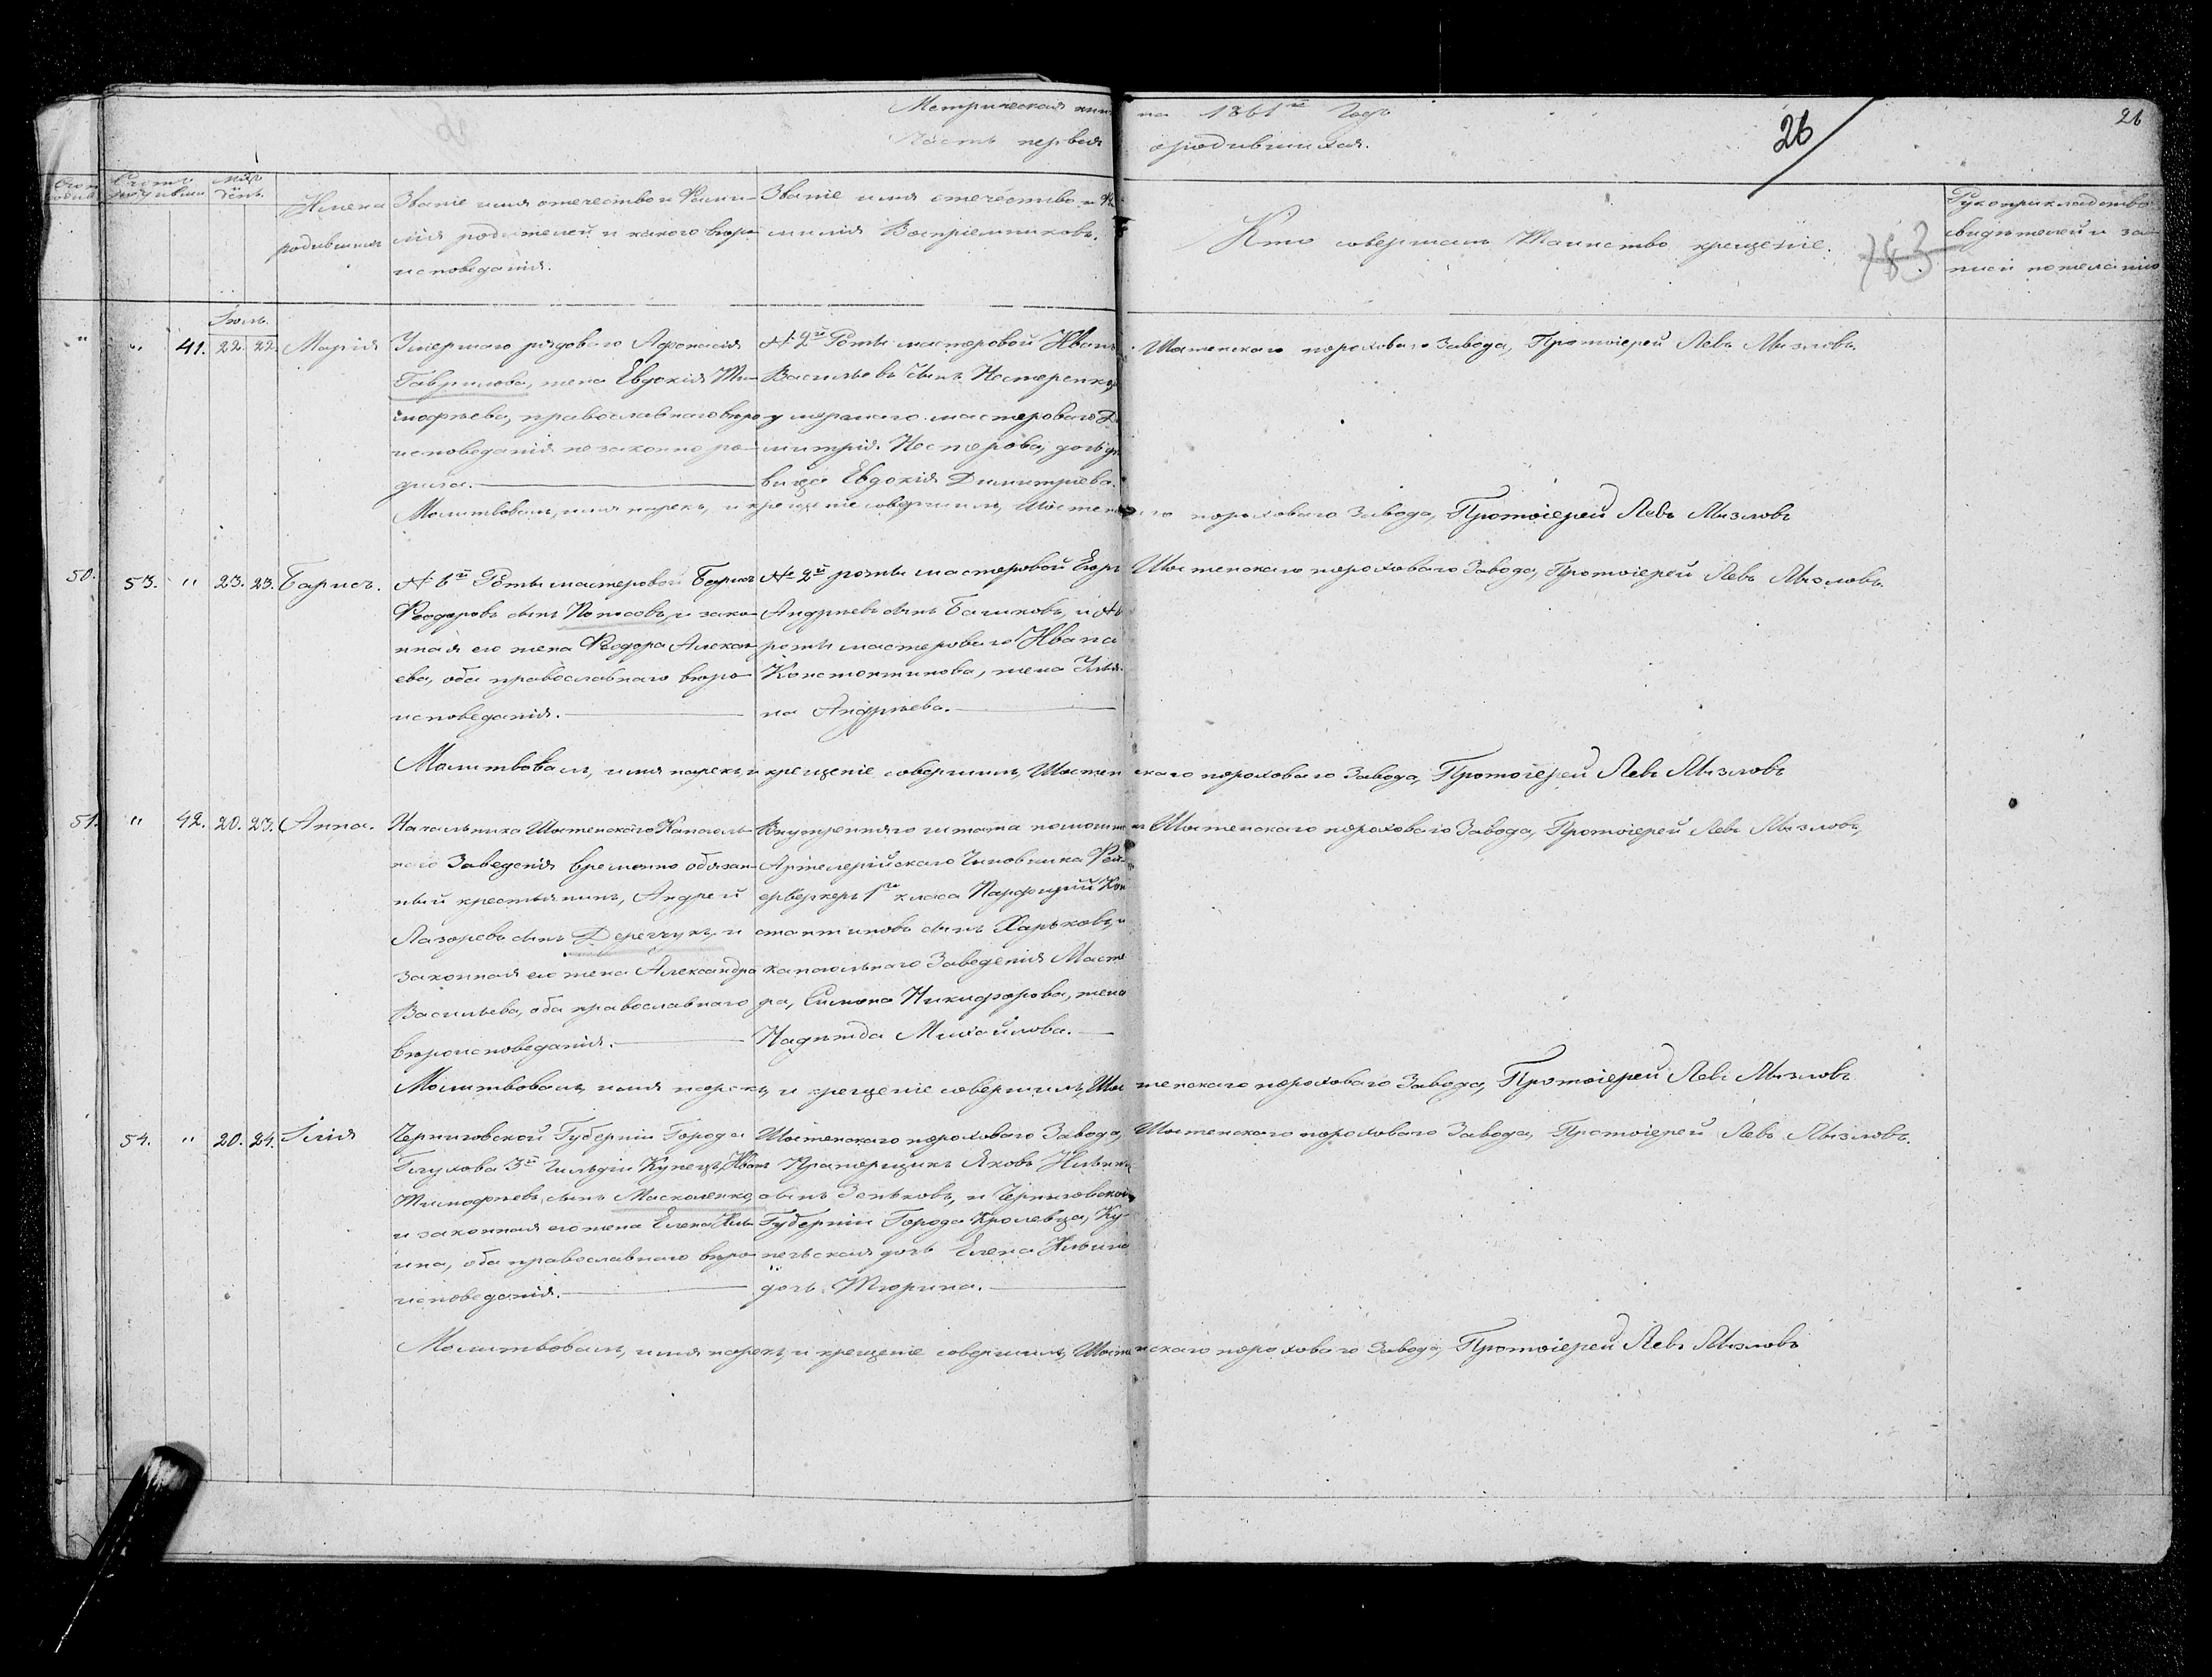 Метрическая кни на 1861 го Годъ
26
26
Часть первая о родившихся.
Счетъ родившихся
Мѣс. День.
Имена родившихся
Званіе имя отечество и Фами-
лія родителей и какого вѣро-
исповеданія.
Званіе имя отечество и Фа
милія Воспріемниковъ.
Кто совершалъ Таинство крещеніе.
783
Рукоприкладство
свидѣтелей и за-
писи по желанію
Іюль.
" " 41. 22. 22. Марія
Умершаго рядоваго Афонасія
Гаврилова, жена Евдокія Ти-
мофѣева, православнаго вѣро
исповеданія незаконно ро-
дила.
№ 2й Роты мастеровой Иванъ
Васильевъ сынъ Нестеренко,
умершаго мастероваго Ди
митрія Нестерова, дочь дѣ
вица Евдокія Димитріева.
Шостенскаго пороховаго Завода, Протоіерей Левъ Мызловъ.
Молитвовалъ, имя нарекъ, и крещеніе совершилъ, Шостенскаго пороховаго Завода, Протоіерей Левъ Мызловъ
50. 53. " 23. 23. Барисъ.
№ 6й Роты мастеровой Барисъ
Феодоровъ сынъ и зако-
нная его жена Феодора Алексѣ
ева, оба православнаго вѣро-
исповеданія.
№ 2й роты мастеровой Егоръ
Андрѣевъ сынъ Башковъ, и №
роты мастероваго Ивана
Константинова, жена Улья-
на Андрѣева.
Шостенскаго пороховаго Завода, Протоіерей Левъ Мызловъ.
Молитвовалъ, имя нарекъ, и крещеніе совершилъ, Шостенскаго пороховаго Завода, Протоіерей Левъ Мызловъ
51. " 42. 20. 23. Анна.
Начальника Шостенскаго Капсюль-
наго Заведенія временно обязан-
ный крестьянинъ, Андрей
Лазоревъ сынъ Деречукъ, и
законная его жена Александра
Васильева, оба православнаго
вѣроисповеданія.
Внутренняго штата помощни
Артелерійскаго Чиновника Фей-
ерверкеръ 1го класа Парфирій Кон
стантиновъ сынъ Харьковъ, и
капсюльнаго Заведенія Масте
ра, Симона Никифорова, жена
Надѣжда Михайлова.
Шостенскаго пороховаго Завода, Протоіерей Левъ Мызловъ,
Молитвовалъ, имя нарекъ, и крещеніе совершилъ, Шостенскаго пороховаго Завода, Протоіерей Левъ Мызловъ
54. " 20. 24. Ілія
Черниговской Губерніи Города
Глухова 3й Гильдіи Купецъ, Иванъ
Тимофѣевъ, сынъ Маскаленко,
и законная его жена Елена Иль-
ина, оба православнаго вѣро-
исповеданія.
Шостенскаго пороховаго Завода,
Прапорщикъ Яковъ Ильинъ
сынъ Зеньковъ, и Черниговской
Губерніи Города Кролевца, Ку-
печьская дочь Елена Ильина
дочь Тюрина.
Шостенскаго пороховаго Завода, Протоіерей Левъ Мызловъ.
Молитвовалъ, имя нарекъ, и крещеніе совершилъ, Шостенскаго пороховаго Завода, Протоіерей Левъ Мызловъ